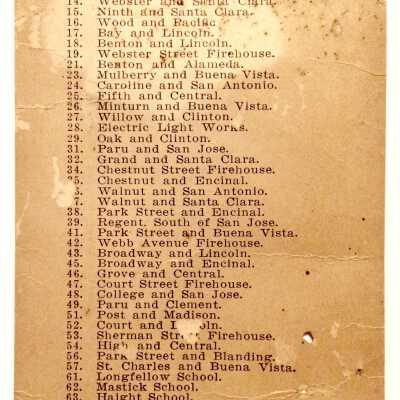 14. Webster and Santa Clara.
15. Ninth and Santa Clara.
16. Wood and Pacific
17. Bay and Lincoln.
18. Benton and Lincoln.
19. Webster Street Firehouse.
21. Benton and Alameda.
23. Mulberry and Buena Vista.
24. Caroline and San Antonio.
25. Fifth and Central.
26. Minturn and Buena Vista.
27. Willow and Clinton.
28. Electric Light Works.
29. Oak and Clinton.
31. Paru and San Jose.
32. Grand and Santa Clara.
34. Chestnut Street Firehouse.
35. Chestnut and Encinal.
6. Walnut and San Antonio.
7. Walnut and Santa Clara.
38. Park Street and Encinal.
39. Regent, South of San Jose.
41. Park Street and Buena Vista.
42. Webb Avenue Firehouse.
43. Broadway and Lincoln.
45. Broadway and Encinal.
46. Grove and Central.
47. Court Street Firehouse.
48. College and San Jose.
49. Paru and Clement.
51. Post and Madison.
52. Court and L coln.
53. Sherman Street Firehouse.
54. High and Central.
56. Park Street and Blanding.
57. St. Charles and Buena Vista.
61. Longfellow School.
62. Mastick School.
63. Haight School.